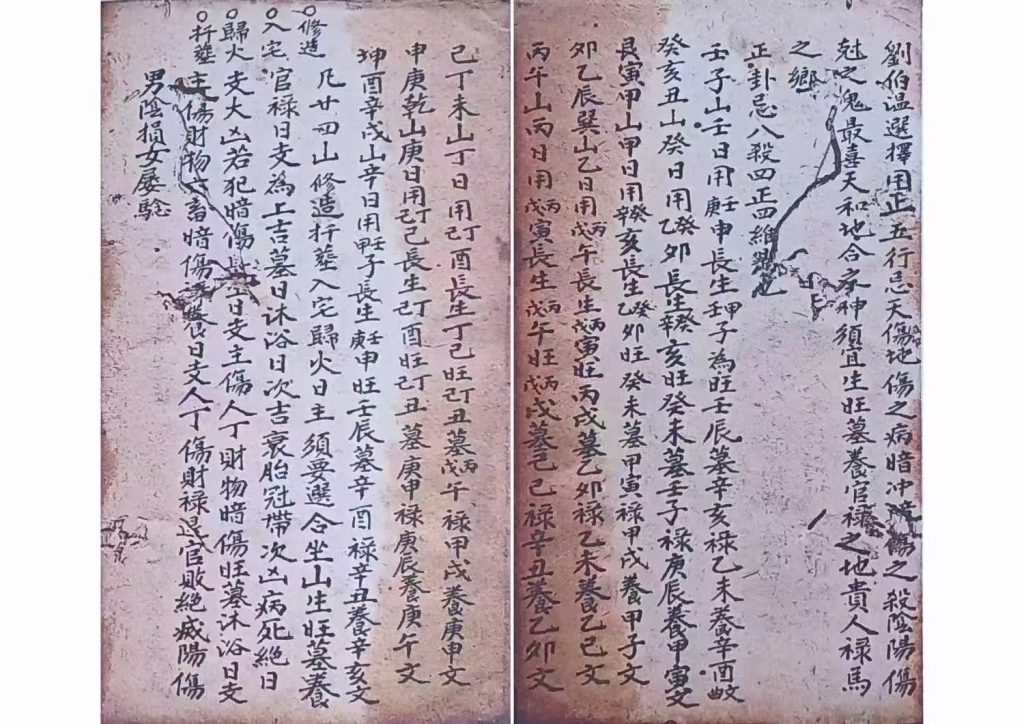 劉伯溫選擇用正五行忌天傷地傷之病暗冲暗傷之殺陰陽傷
尅之鬼最喜天和地合名神須宜生旺墓養官禄之地貴人禄馬
之鄉
正卦忌八殺四正四維
壬子山壬日用庚壬申長生甲壬子為旺壬辰墓辛亥禄乙未養辛酉文
癸亥丑山癸日用乙癸卯長生辛癸亥旺癸未墓壬子禄庚辰養甲寅文
艮寅甲山甲日用辛癸亥長生乙癸卯旺癸未墓甲寅禄甲戌養甲子文
卯乙辰巽山乙日用戊丙午長生戊丙寅旺丙戌墓乙卯禄乙未養乙巳文
丙午山丙日用戊丙寅長生戊丙午旺戊丙戌墓己巳禄辛丑養乙卯文
己丁未山丁日用己丁酉長生丁己旺己丑墓戊丙午禄甲戌養庚申文
申庚乾山庚日用己丁己長生己丁酉旺己丁丑墓庚申禄庚辰養庚午文
坤酉辛戌山辛日用甲壬子長生庚壬申旺壬辰墓辛酉禄辛丑養辛亥文
修造 凡廿四山修造扦塟入宅歸火日主須要選合坐山生旺墓養
入宅 官禄日支為上吉墓日沐浴日次吉衰胎冠帶次凶病死絕日
歸火 支大凶若犯暗傷日支主傷人丁財物暗傷旺墓沐浴日支
扦塟 主傷財物六畜暗傷養日支人丁傷財禄退官敗絕滅陽傷
男陰損女屡騐